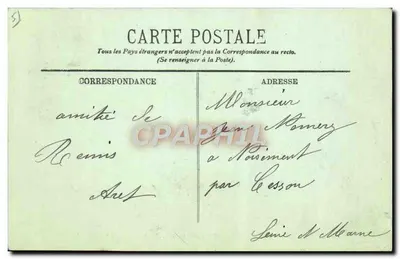 CARTE POSTALE
Tous les Pays étrangers n'acceptent pas la Correspondance au recto.
(Se renseigner à la Poste).
CORRESPONDANCE
amitié de
ADRESSE
Monsieur
a
par Cesson
Seine M Marne
CPARAMA